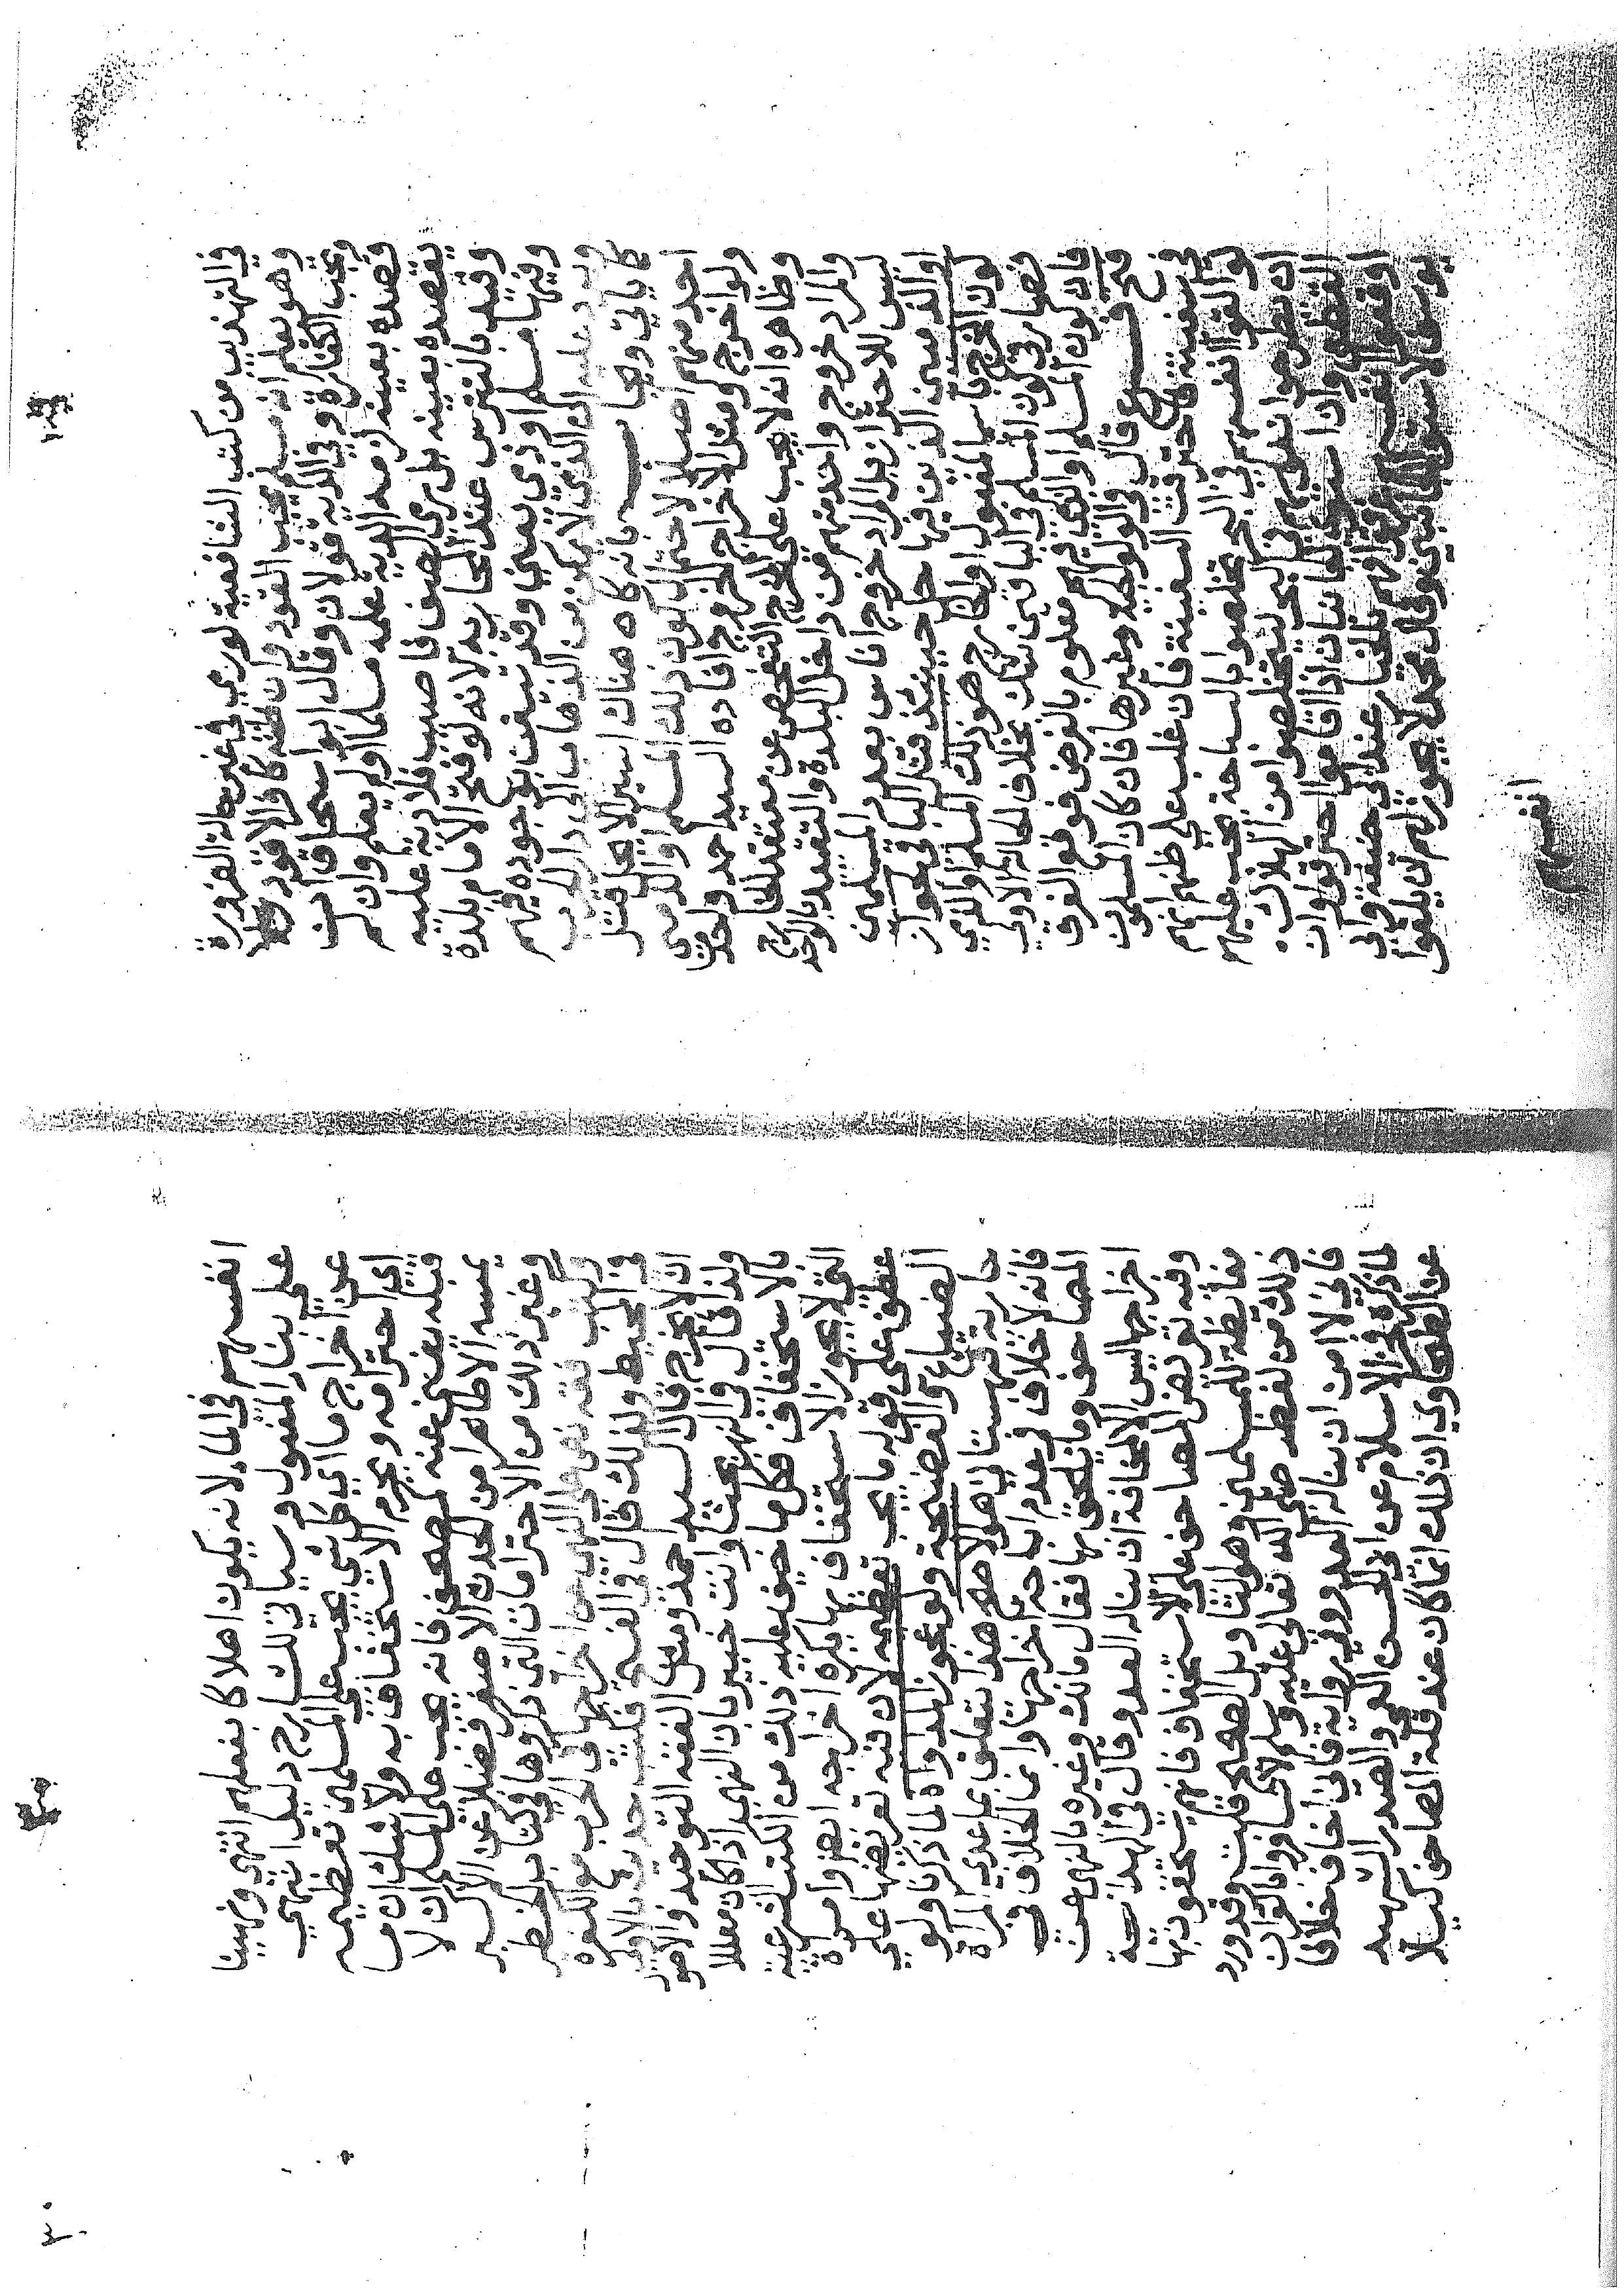 في التهذيب من كتب الشافعية لو رمي في غير حالة الضرورة
وهو يعلم انه مسلم يجب القود وان ظنه كافرا لا قود
ويجب الكفارة وفي الدية قولان وقال ابو اسحاق ان
قصده بعينه لزمه الدية علمه مسلما او لم يعلم وان لم
يقصده بعينه بل رمي الى الصف فاصيب فلا دية عليه
وقيد بالتترس عند المحاربة لانه لو فتح الامام بلدة
وفيها مسلم او ذمي يعني وقد تيقنا بوجوده فيهم
ويرد عليه ان الذمي لا يمكن من الذهاب الى دار الحرب
كما ياتي ويجاب بانه كان هناك اسيرا لا يحل قتل
احد منهم اصلا لاحتمال كون ذلك المسلم والذمي
ولو اخرج ومثل الاخراج الخروج افاده السيد احمد واحد من
وظاهره انه لا يجب على المخرج التفحص عن معتقد الخارج
والمراد خروج واحد منهم من داخل البلدة والتقييد بالواحد
ليس للاحتراز بل المراد خروج اناس بعدد المسلمين
او الذميين الذين فيها حل حينئذ قتل الباقي لجواز
كون المخرج باسم المفعول او الخارج هو ذلك المسلم او الذمي
فصار في كون المسلم في الباقين شك بخلاف الحالة الاولى
فان كون المسلم او الذمي فيهم معلوم بالفرض فوقع الفرق
فتح فرع قال في الولوالجية وغيرها فان كان المسلمون
في سفينة فاحترقت السفينة فان غلب على ظنهم انهم
لو القوا انفسهم في البحر تخلصوا بالسباحة يجب عليهم
ان يطرحوا نفوسهم في البحر ليتخلصوا من الهلاك
القطعي وان استوى الجانبان ان اذا اقاموا احترقوا وان
اوقعوا انفسهم غرقوا فهم بالخيار عند ابي حنيفة وابي
يوسف لاستواء الجانبين وقال محمد لا يجوز لهم ان يلقوا
انفسهم
انفسهم في الماء لانه يكون اهلاكا بفعلهم انتهى ونهينا
على بناء المفعول وسياتي ذلك شارح دليل انتهى
عن اخراج ما اي كل شيء يجب على المسلمين تعظيمه
اي احترامه ويحرم الاستخفاف به ولا شك ان ما
قبله يغني عنه كمصحف فانه يجب على المسلم ان لا
يمسه الا طاهرا من الحدث الاصغر فضلا عن الاكبر
وغير ذلك من الاحترامات التي ذكروها في كتاب الحظر
وكتب فقه نص على النهي عن اخراجها في الحرب مع الكفرة
في المحيط ولذلك قال في الفتح وحديث بالاولى
ان لا يخرج قال السيد احمد ومثل الفقه التوحيد والاصول
ولذا قال في النهر بحثا وانت خبير بان النهي اذا كان معللا
بالاستخفاف فكلما خيف عليه ذلك من الكتب الشرعية
التي لا يجوز الاستخفاف بها يكره اخراجه ايضا وامراة
عطف على قوله ما يجب تعظيمه لان فيه تعريضها على
الضياع والفضيحة ولو عجوز المداواة لما ذكرنا ولو
حاربة قهستاني هو الاصح هذا يتعلق بما عدى المراة
فانه لا خلاف في عدم اباحة اخراجها وانما الخلاف في
المصاحف وما يلحق بها فقال مالك وغيره بالنهي عن
اخراجها ليس الا لمخافة ان يناله العدو قال في الهداية
وفيه تعريض المصاحف على الاستخفاف فانهم يستخفون بها
مغايظة للمسلمين وهو التاويل الصحيح قلت وقد ورد
ذلك من لفظه صلى الله تعالى عليه وسلم لا تسافروا بالقران
فاني لا امن ان يناله العدو وفي رواية فاني اخاف خلافا
لما ذكره فخر الاسلام عن ابي الحسن القمي والصدر الشهيد
عن الطحاوي ان ذلك انما كان عند قلة المصاحف كيلا